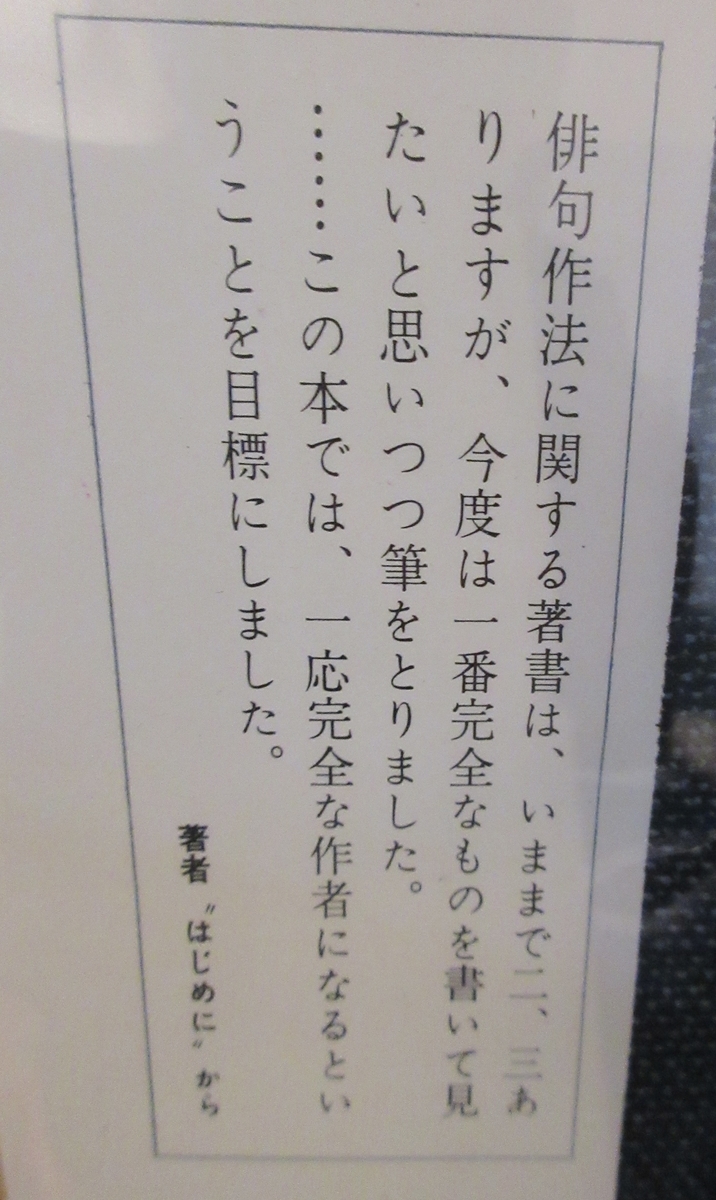 俳句作法に関する著書は、いままで二、三あ
りますが、今度は一番完全なものを書いて見
たいと思いつつ筆をとりました。
……この本では、一応完全な作者になるとい
うことを目標にしました。
著者〝はじめに〟から